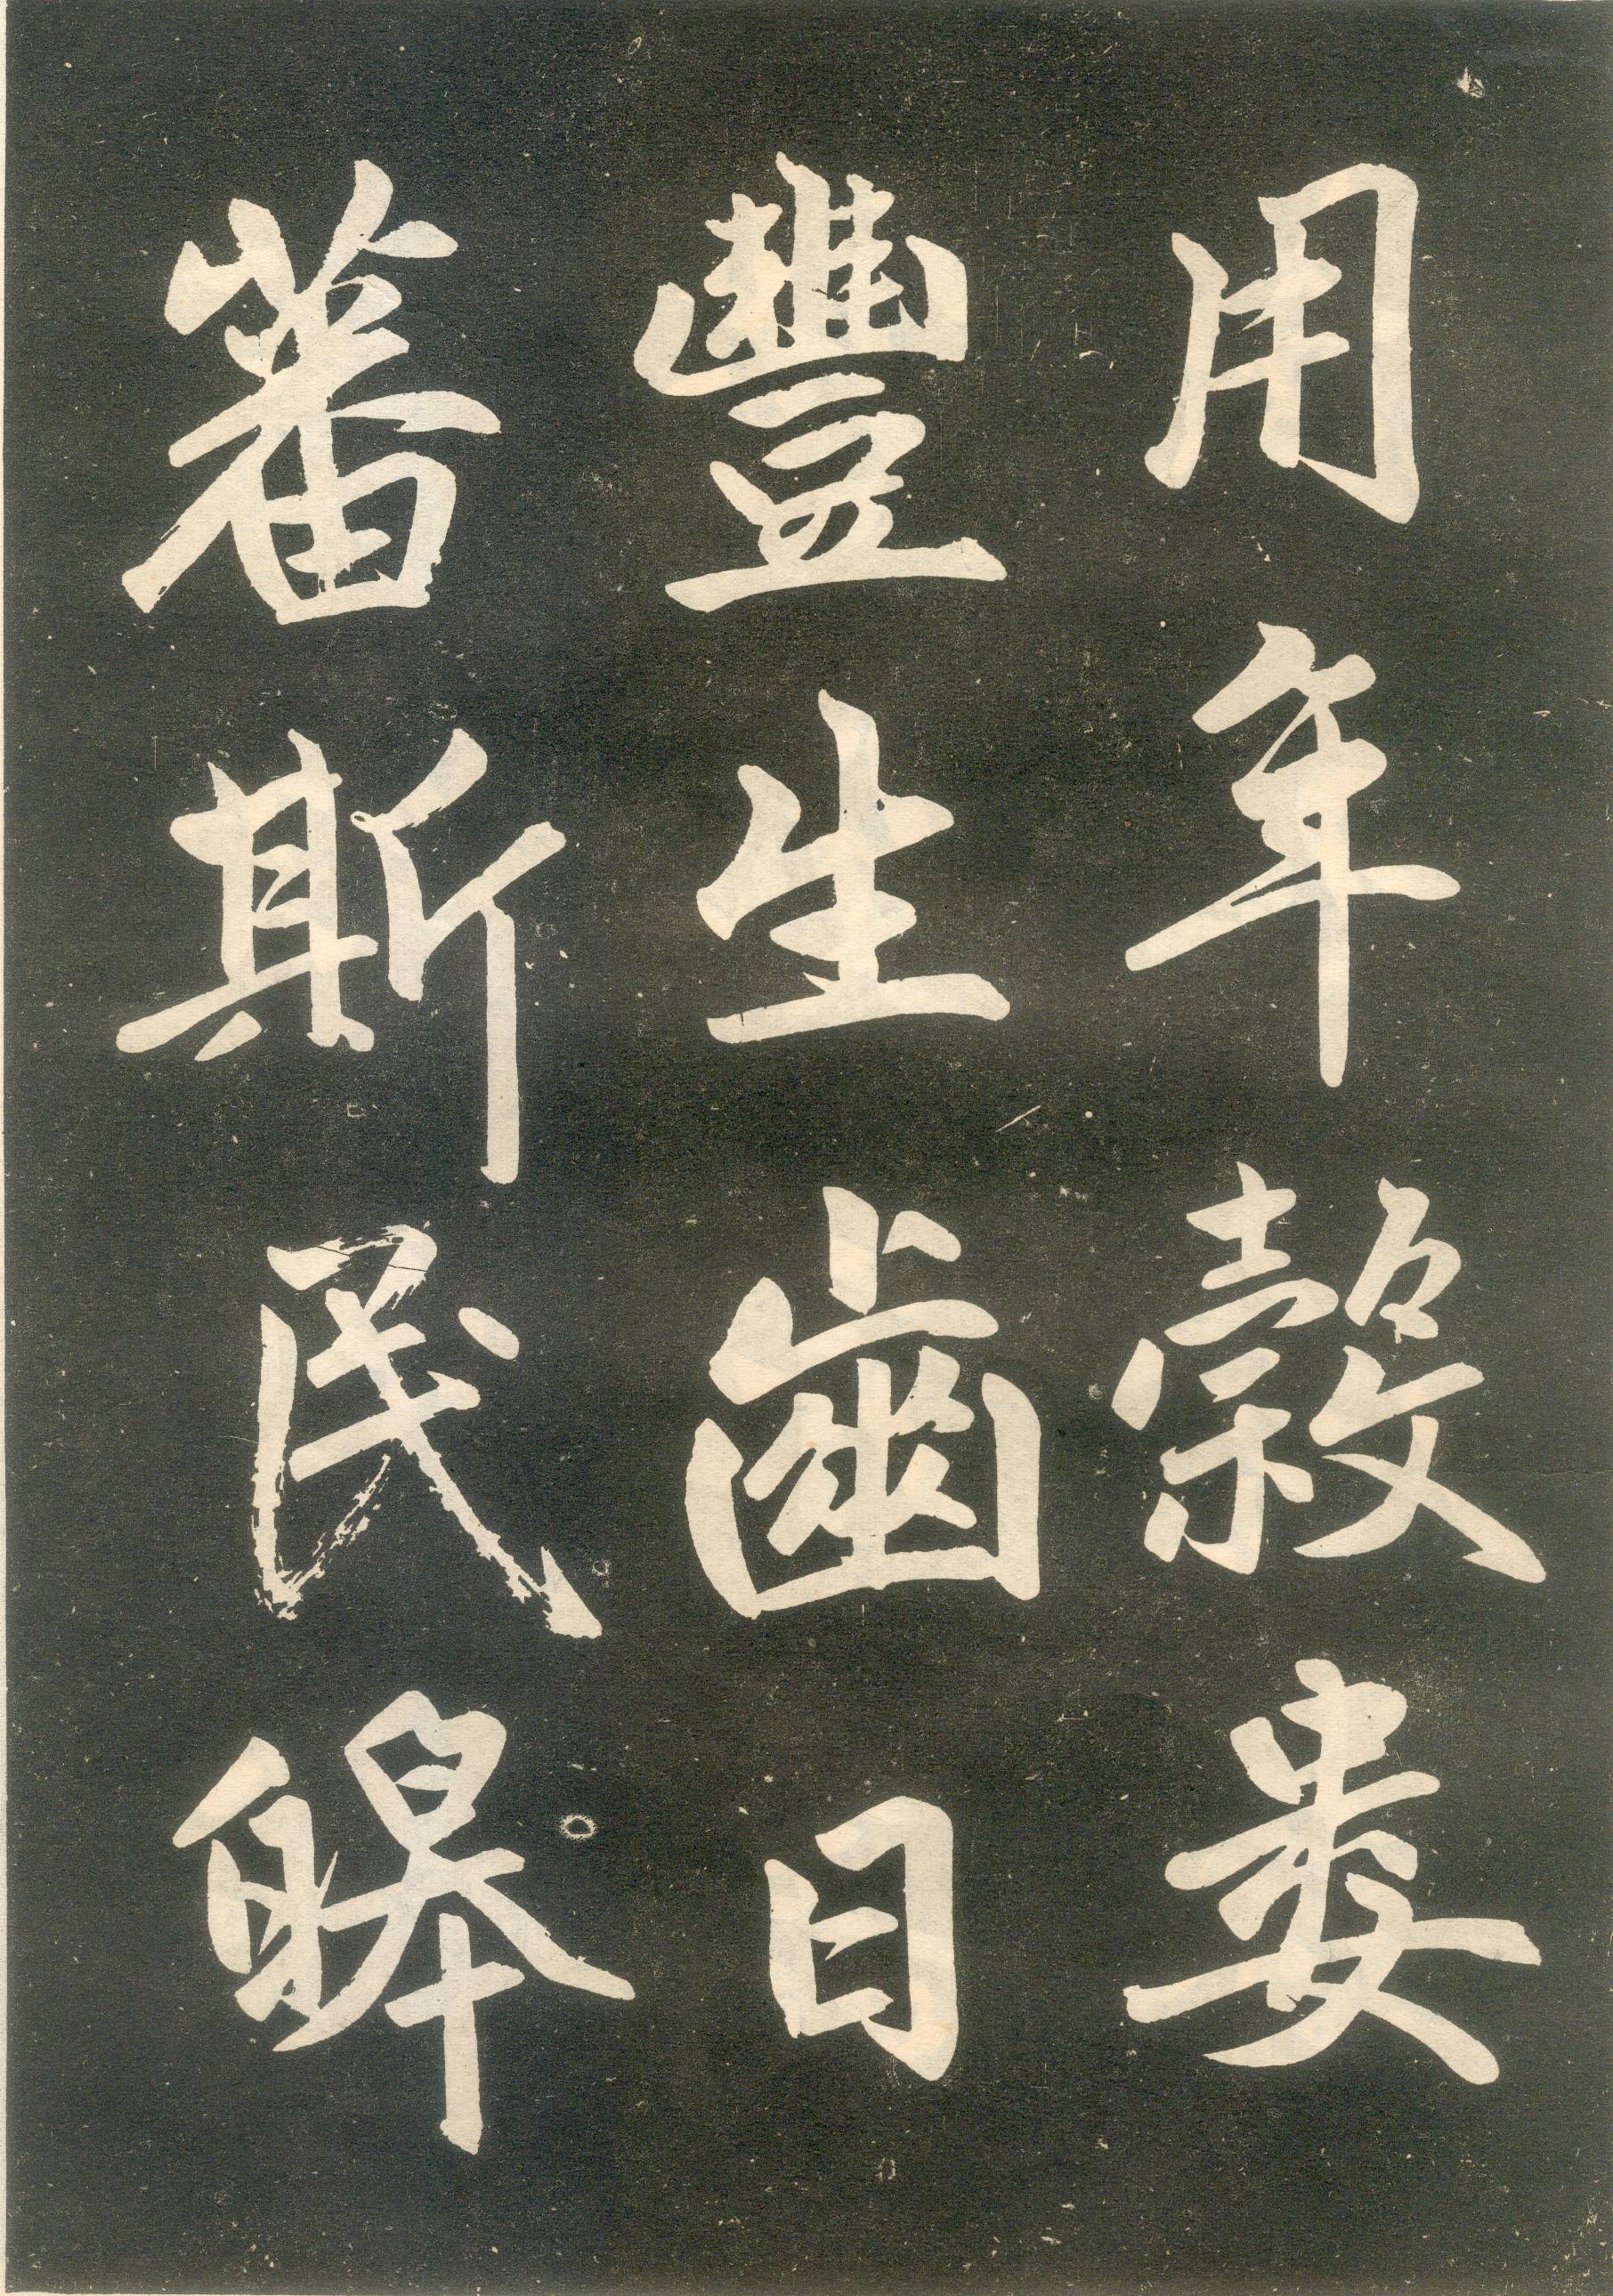 用年穀婁
豐生齒日
蕃斯民皞